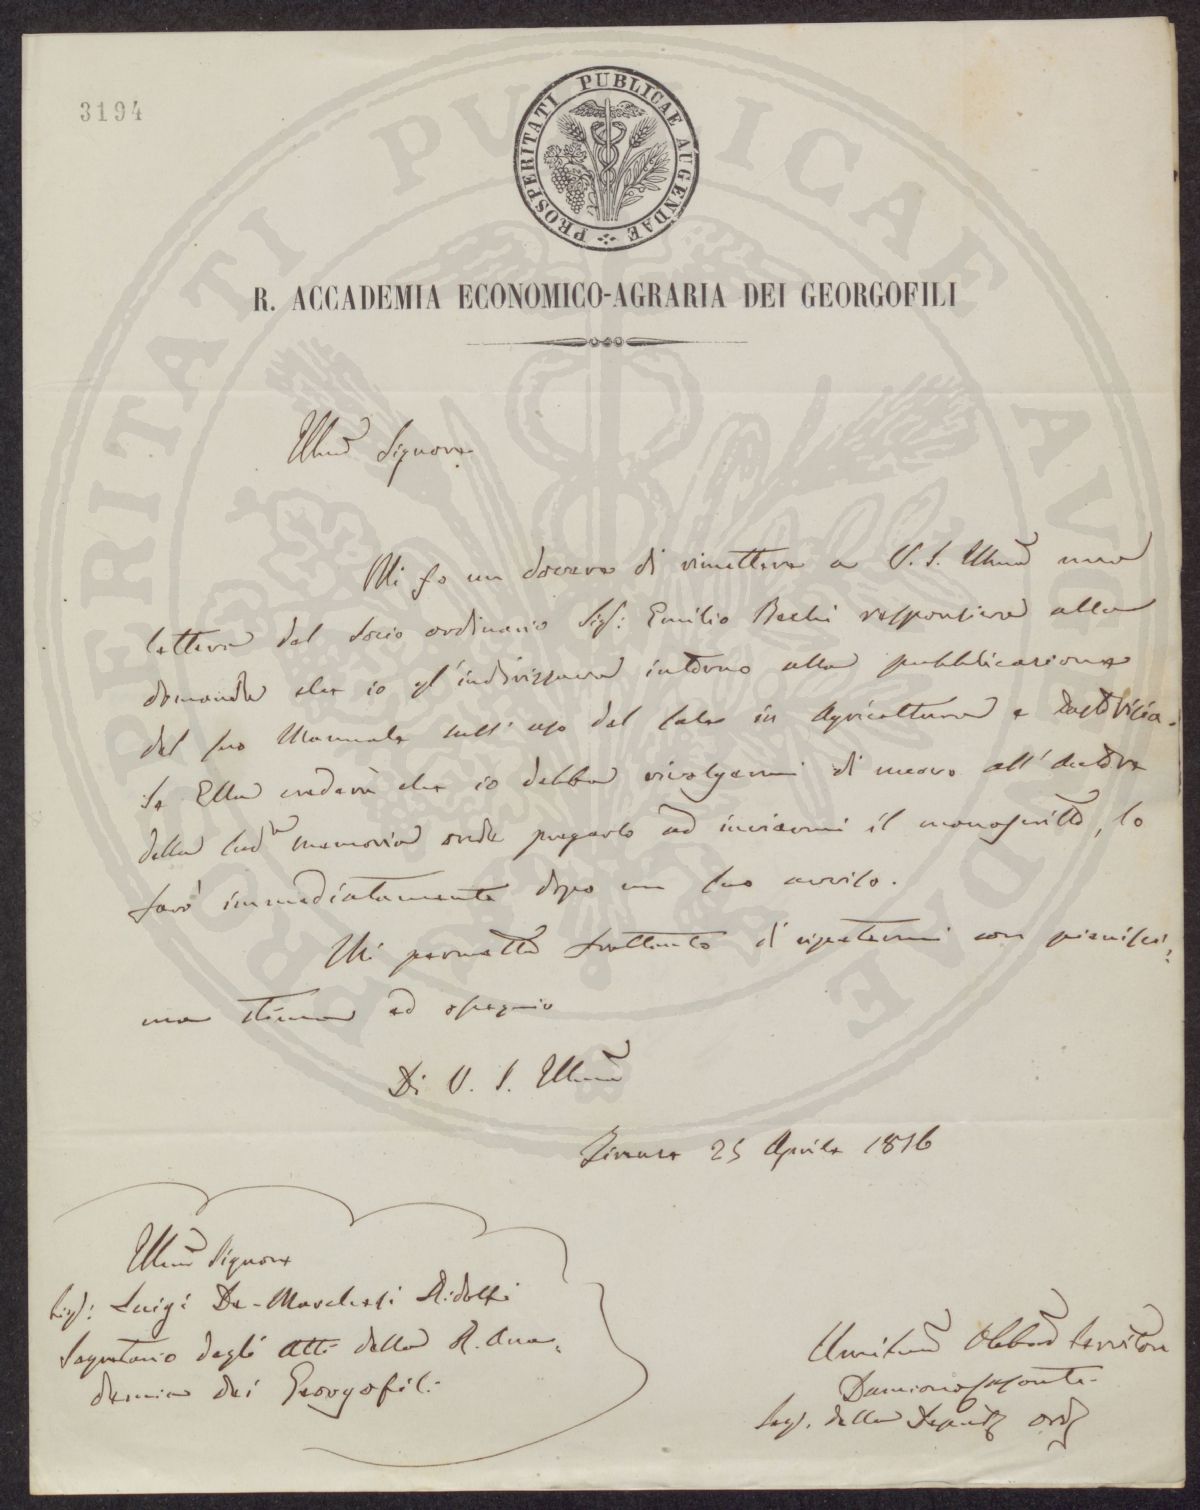 3194
PROSPERITATI PUBLICAE AUGENDAE
R. ACCADEMIA ECONOMICO-AGRARIA DEI GEORGOFILI
Illmo Signore
Mi fo un dovere di rimettere a V. S. Illma una
lettera del Socio ordinario Sig: Emilio Bechi responsiva alla
domanda che io gl'indirizzava intorno alla pubblicazione
del suo Manuale sull'uso del sale in Agricoltura e Pastorizia.
Se Ella crederà che io debba rivolgermi di nuovo all'autore
della suda memoria onde pregarlo ad inviarmi il manoscritto, lo
farò immediatamente dopo un suo avviso.
Mi permetto frattanto di ripetermi con pienissi-
ma stima ed ossequio
Di V. S. Illma
Firenze 25 Aprile
Illmo Signore
Sig: Luigi De-Marchesi Ridolfi
Segretario degli Atti della R. Acca-
demia dei Georgofili
Umilmo Obbmo Servitore
Segr. della Deput. ord
PROSPERITATI PUBLICAE AUGENDAE